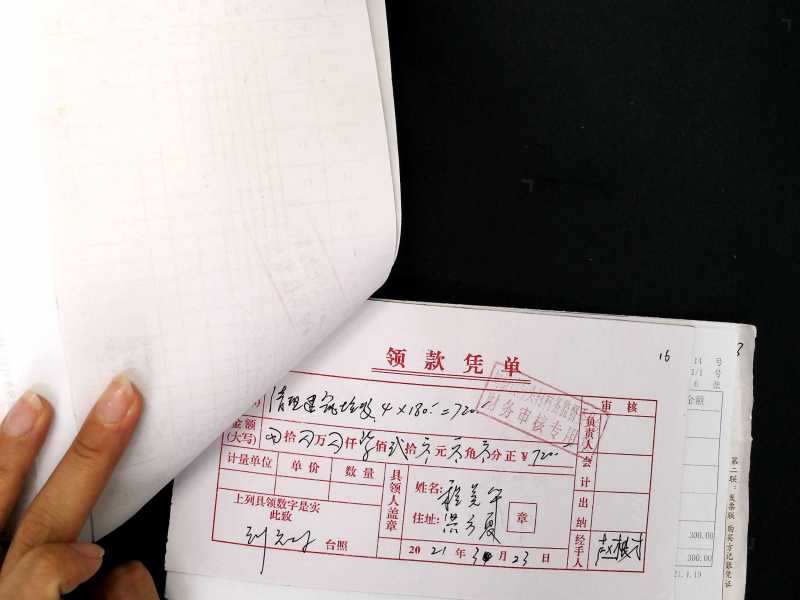 16
3
领款凭单
清理建筑垃圾 4×180=720
财务审核专用
审核
金额
(大写)
拾 万 仟 柒 佰 贰 拾 元 角 分 正 ¥ 720
计量单位 单价 数量
上列具领数字是实
此致
台照
具领人盖章
姓名:
住址:
章
2021年3月23日
负责人
会计
出纳
经手人
14 号
1/1 号
6 张
金额
300.00
300.00
21.1.19
第二联:发票联 购买方记账凭证